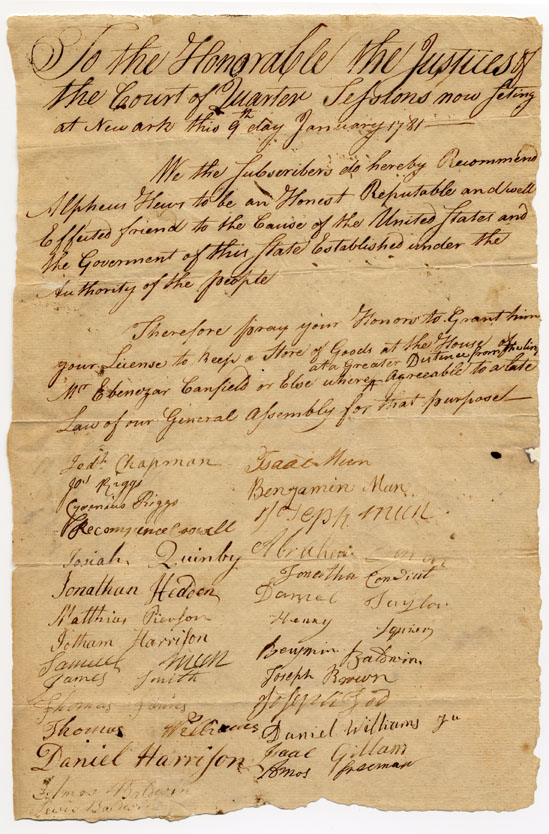 To the Honorable the Justices of
the Court of Quarter Sessions now seting
at Newark this 9th day January 1781
We the Subscribers do hereby Recommend
Alpheus Hews to be an Honest Reputable and well
Effected friend to the Cause of the United States and
the Goverment of this State Established under the
Authority of the people
Therefore pray your Honors to Grant him
your License to keep a Store of Goods at the House of
at a Greater Distance from the lines
Mr Ebenezar Canfield or Else where Agreeable to a late
Law of our General Assembly for that purpose
Jedh Chapman
Jos Riggs
Cyrenius Riggs
Recompence
Josiah Quinby
Jonathan Hedden
Matthias Pierson
Jotham Harrison
Samuel Mun
James Smith
Thomas
Thomas Williams
Daniel Harrison
Baldwin
Lewis Baldwin
Isaac Mun
Benjamin Mun
Joseph Mun
Abraham
Jonertha Condict
Daniel Taylor
Henny Squier
Benymin Baldwin
Joseph Brown
Joseph
Daniel Williams Ju
Isaac Gillam
Amos Freeman